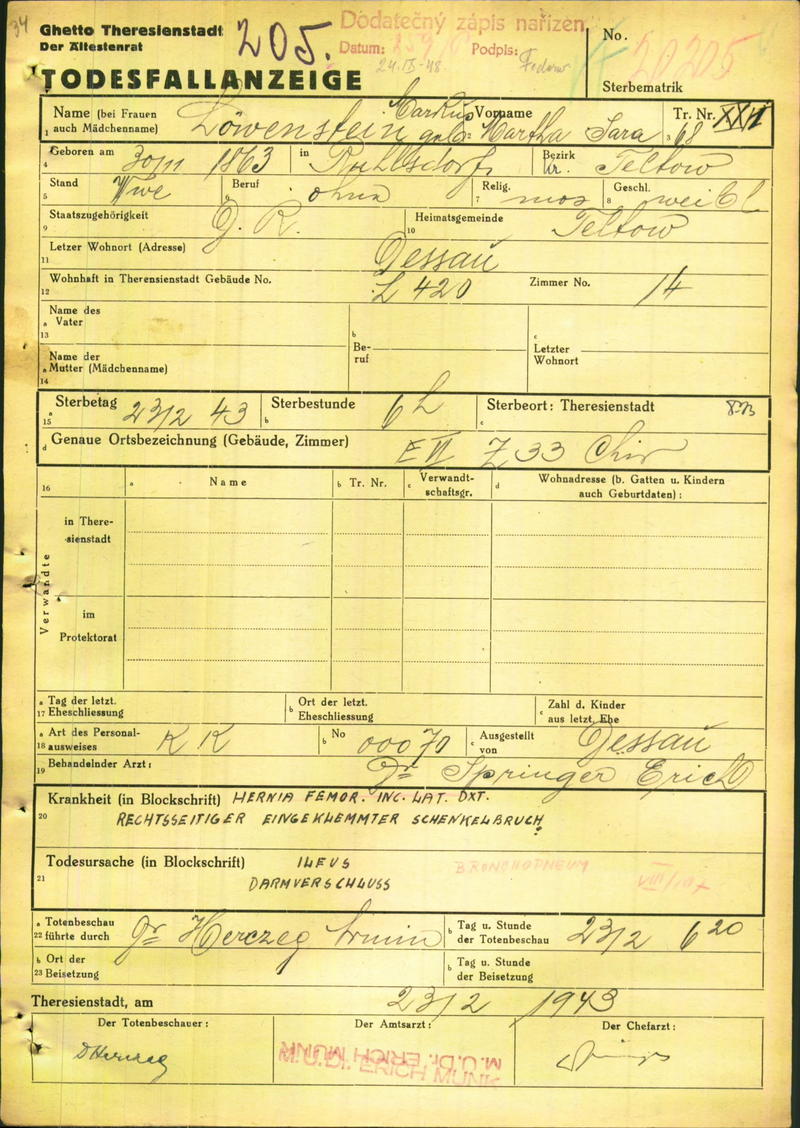 34
Ghetto Theresienstadt
Der Ältestenrat
205.
Dodatečný zápis nařízen
Datum: Podpis:
24.IX-48
No. 20205
Sterbematrik
TODESFALLANZEIGE
Name (bei Frauen auch Mädchenname) Löwenstein geb: Markus Vorname Martha Sara Tr. Nr. 68
1 3
Geboren am 1863 in Ruhlsdorf Bezirk Teltow
4
Stand Wwe Beruf ohne Relig. mos Geschl. weibl
5 6 7 8
Staatszugehörigkeit D. R. Heimatsgemeinde Teltow
9 10
Letzer Wohnort (Adresse) Dessau
11
Wohnhaft in Therensienstadt Gebäude No. L 420 Zimmer No. 14
12
Name des
a Vater
13
b Beruf
c Letzter Wohnort
Name der
a Mutter (Mädchenname)
14
a Sterbetag 23/2 43 b Sterbestunde 6 h c Sterbeort: Theresienstadt
15
d Genaue Ortsbezeichnung (Gebäude, Zimmer) E VI Z 33 Chir
16 a Name b Tr. Nr. c Verwandt-schaftsgr. d Wohnadresse (b. Gatten u. Kindern auch Geburtdaten) :
Verwandte
in There-
sienstadt
im
Protektorat
a Tag der letzt. b Ort der letzt. c Zahl d. Kinder
17 Eheschliessung Eheschliessung aus letzt. Ehe
a Art des Personal- KK b No 00070 c Ausgestellt Dessau
18 ausweises von
19 Behandelnder Arzt: Dr Springer Erich
Krankheit (in Blockschrift) HERNIA FEMOR. INC. LAT. DXT.
20 RECHTSSEITIGER EINGEKLEMMTER SCHENKELBRUCH
Todesursache (in Blockschrift) ILEUS BRONCHOPNEUM
21 DARMVERSCHLUSS
a Totenbeschau Dr Herczeg Armin b Tag u. Stunde 23/2 6 20
22 führte durch der Totenbeschau
b Ort der b Tag u. Stunde
23 Beisetzung der Beisetzung
Theresienstadt, am 23/2 1943
Der Totenbeschauer: Der Amtsarzt: Der Chefarzt:
DHerczeg M.U.Dr. ERICH MUNK
M.U.Dr. ERICH MUNK